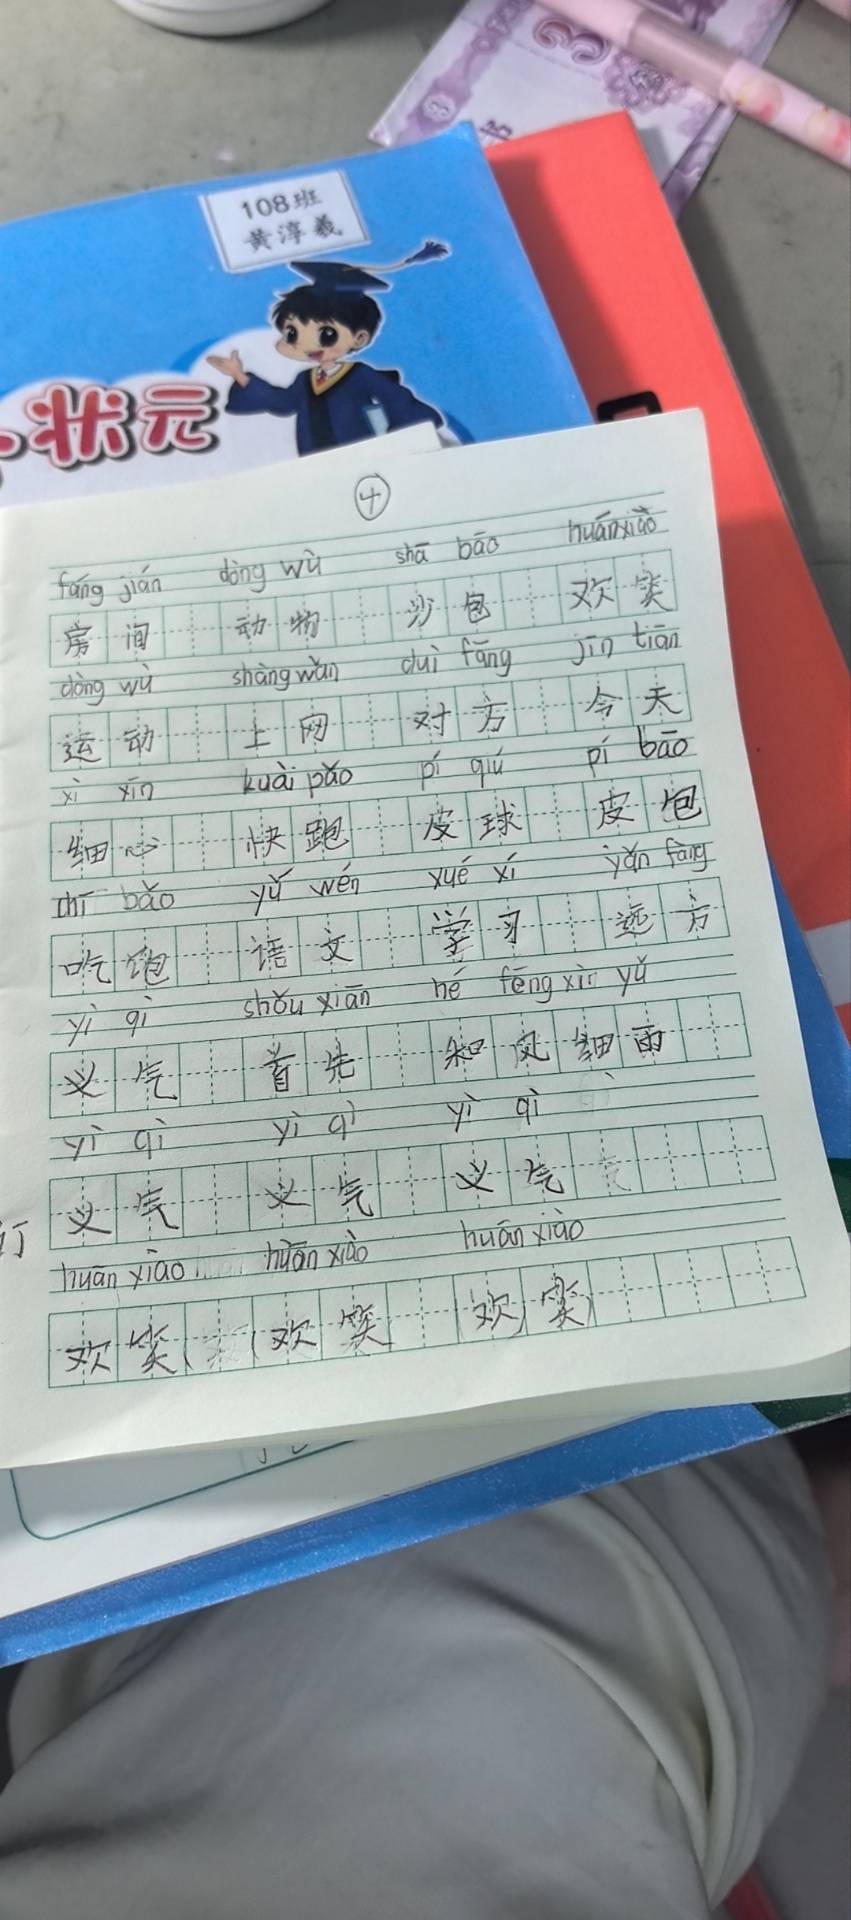 108班
黄淳羲
状元
④
fáng jián dòng wù shā bāo huánxiào
房间 动物 沙包 欢笑
dòng wù shàng wǎn duì fāng jīn tiān
运动 上网 对方 今天
xì xīn kuài pǎo pí qiú pí bāo
细心 快跑 皮球 皮包
chī bǎo yǔ wén xué xí yǎn fāng
吃饱 语文 学习 远方
yì qì shǒu xiān hé fēng xìn yǔ
义气 首先 和风细雨
yì qì yì qì yì qì
义气 义气 义气
订
huān xiào huān xiào huān xiào
欢笑 欢笑 欢笑